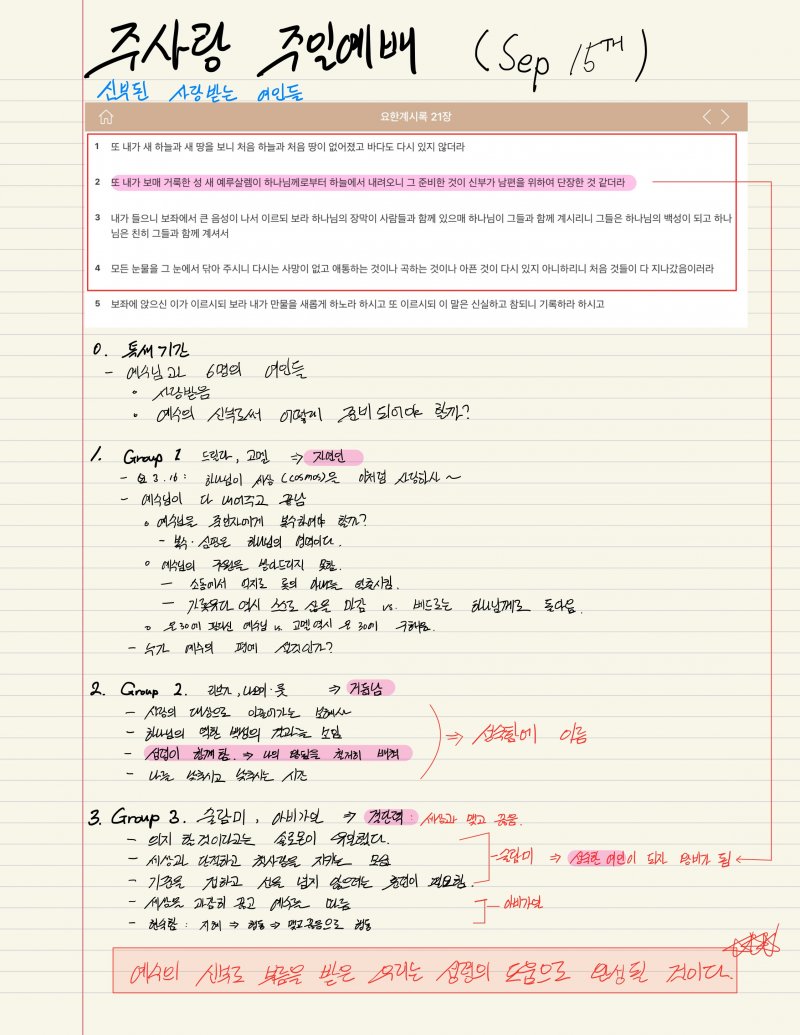 주사랑 주일예배 (Sep 15TH)
신부된 사랑받는 여인들
요한계시록 21장
1 또 내가 새 하늘과 새 땅을 보니 처음 하늘과 처음 땅이 없어졌고 바다도 다시 있지 않더라
2 또 내가 보매 거룩한 성 새 예루살렘이 하나님께로부터 하늘에서 내려오니 그 준비한 것이 신부가 남편을 위하여 단장한 것 같더라
3 내가 들으니 보좌에서 큰 음성이 나서 이르되 보라 하나님의 장막이 사람들과 함께 있으매 하나님이 그들과 함께 계시리니 그들은 하나님의 백성이 되고 하나
님은 친히 그들과 함께 계셔서
4 모든 눈물을 그 눈에서 닦아 주시니 다시는 사망이 없고 애통하는 것이나 곡하는 것이나 아픈 것이 다시 있지 아니하리니 처음 것들이 다 지나갔음이러라
5 보좌에 앉으신 이가 이르시되 보라 내가 만물을 새롭게 하노라 하시고 또 이르시되 이 말은 신실하고 참되니 기록하라 하시고
0. 특새 기간
- 예수님과 6명의 여인들
◦ 사랑받음
◦ 예수의 신부로써 어떻게 준비되어야 할까?
1. Group 1 드릴라, 고멜 ⇒ 자연인
- 요 3.16: 하나님이 세상(cosmos)을 이처럼 사랑하사 ~
- 예수님이 다 내어주고 끝남
◦ 예수님을 주변자에게 복수하여야 할까?
- 복수·심판은 하나님의 영역이다.
◦ 예수님의 구원을 받아드리지 못함.
- 소돔에서 억지로 롯의 아내는 인솔시킴.
- 가롯유다 역시 스스로 삶을 마감 vs. 베드로는 하나님께로 돌아옴.
◦ 은30에 팔리신 예수님 vs. 고멜 역시 은 30에 구해옴.
- 누가 예수의 편에 설것인가?
2. Group 2. 리브가, 나오미·룻 ⇒ 거듭남
- 사랑의 대상으로 이끌어가는 보혜사
- 하나님의 택한 백성의 결과를 보임
- 성령이 함께 함. ⇒ 나의 옛날을 철저히 배척
- 나를 낮추시고 낮추시는 시간
⇒ 성숙함에 이름
3. Group 3. 술람미, 아비가일 ⇒ 결단력: 세상과 맺고 끊음.
- 의지 한 것이라고는 솔로몬이 유일했다.
- 세상과 단절하고 첫사랑을 지키는 모습
- 기준을 정하고 선을 넘지 않으려는 훈련이 필요함.
- 술람미 ⇒ 성숙한 여인이 되자 용비가 됨
- 세상을 과감히 끊고 예수를 따름
- 현숙함: 지혜 ⇒ 행동 ⇒ 맺고 끊음으로 행동
- 아비가일
예수의 신부로 부름을 받은 우리는 성령의 도움으로 완성될 것이다.